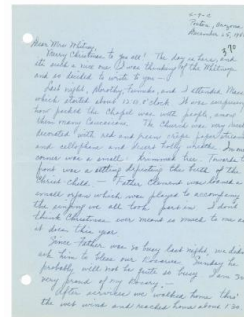 2-9-C
Poston, Arizona
December 25, 194
370
Dear Mrs. Whitney,
Merry Christmas to you all! The day is here, and
it's such a nice one I was thinking of the Whitneys
and so decided to write to you —
Last night, Dorothy, and I attended Mass
which started about 12:00 o'clock. It was surprising
how packed the Chapel was with people, many
The Church was very nicely
decorated with red and green crepe paper streamers
and cellophane and holly wreaths. In one
corner was a small Christmas tree. Towards the
front was a setting depicting the birth of the
Christ Child. — Father Clement was
small organ which was played to accompany
the singing we all took part in. I don't
think Christmas ever meant so much to me as
it does this year.
Since Father was so busy last night, we didn't
ask him to bless our Rosaries. Sunday he
probably will not be quite so busy. I am so
very proud of my Rosary. —
After services we walked home thru
the wind and reached home about 1:30